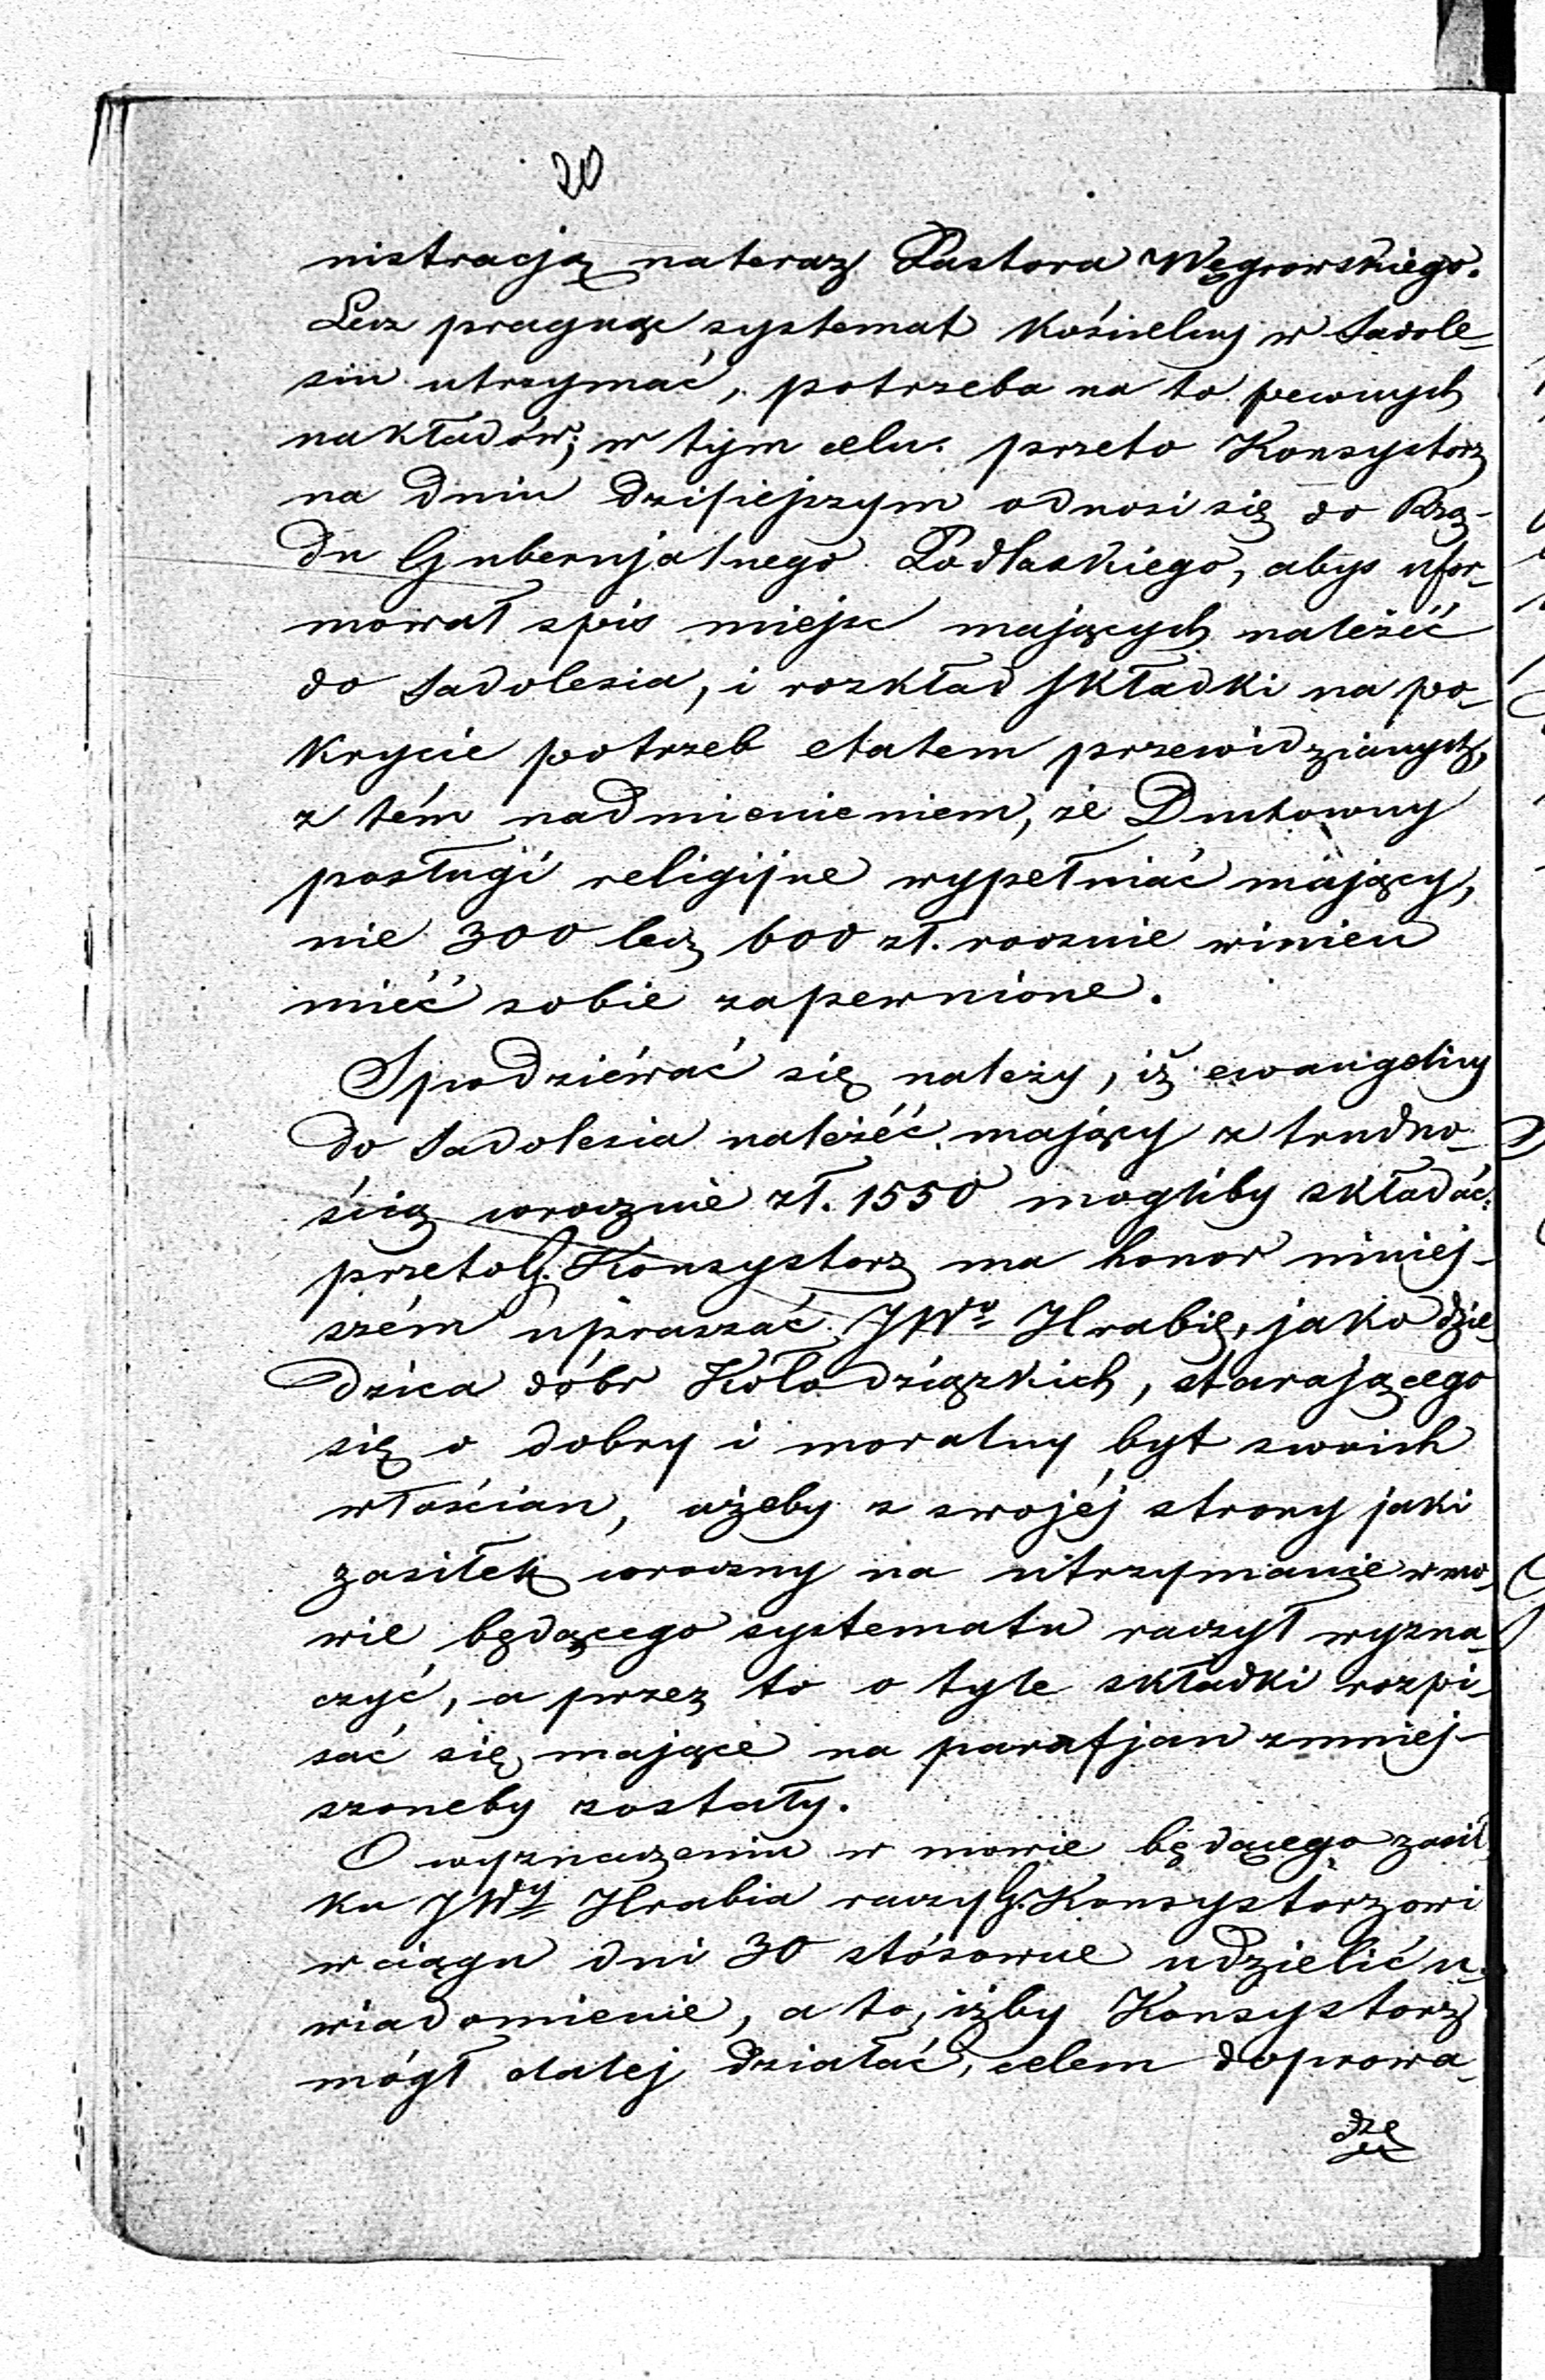 20
nistracją nateraz Pastora Węgrowskiego.
Lecz pragnąc systemat kościelny w Sadole-
siu utrzymać, potrzeba na to pewnych
nakładów; w tym celu przeto Konsystorz
na dniu dzisiejszym odnosi się do Rzą-
du Gubernjalnego Podlaskiego, abys ufor-
mował spis miejsc mających należéć
do Sadolesia, i rozkład składki na po-
krycie potrzeb etatem przewidzianych,
z tém nadmienieniem, że Duchowny
posługi religijne wypełniać mający,
nie 300 lecz 600 zł. rocznie winien
miéć sobie zapewnione.
Spodziéwać się należy, iż ewangelicy
do Sadolesia należéć mający z trudno-
ścią corocznie zł. 1550 mogliby składać:
przeto G. Konsystorz ma honor niniej-
szém upraszać JWo Hrabię, jako dzie-
dzica dóbr Kołodziązkich, starającego
się o dobry i moralny byt swoich
włościan, ażeby z swojéj strony jaki
zasiłek coroczny na utrzymanie w mo-
wie będącego systematu raczył wyzna-
czyć, a przez to o tyle składki rozpi-
sać się mające na parafjan zmniej-
szoneby zostały.
O wyznaczeniu w mowie będącego zasił-
ku JWy Hrabia raczy G. Konsystorzowi
w ciągu dni 30 stósowne udzielić u-
wiadomienie, a to, iżby Konsystorz
mógł dalej działać, celem doprowa-